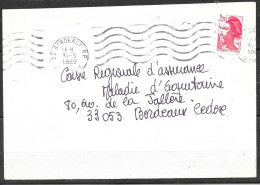 33 BORDEAUX R.P.
1989
Caisse Regionale d'assurance
Maladie d'Aquitaine
80, av. de la Jallère
33053 Bordeaux Cedex